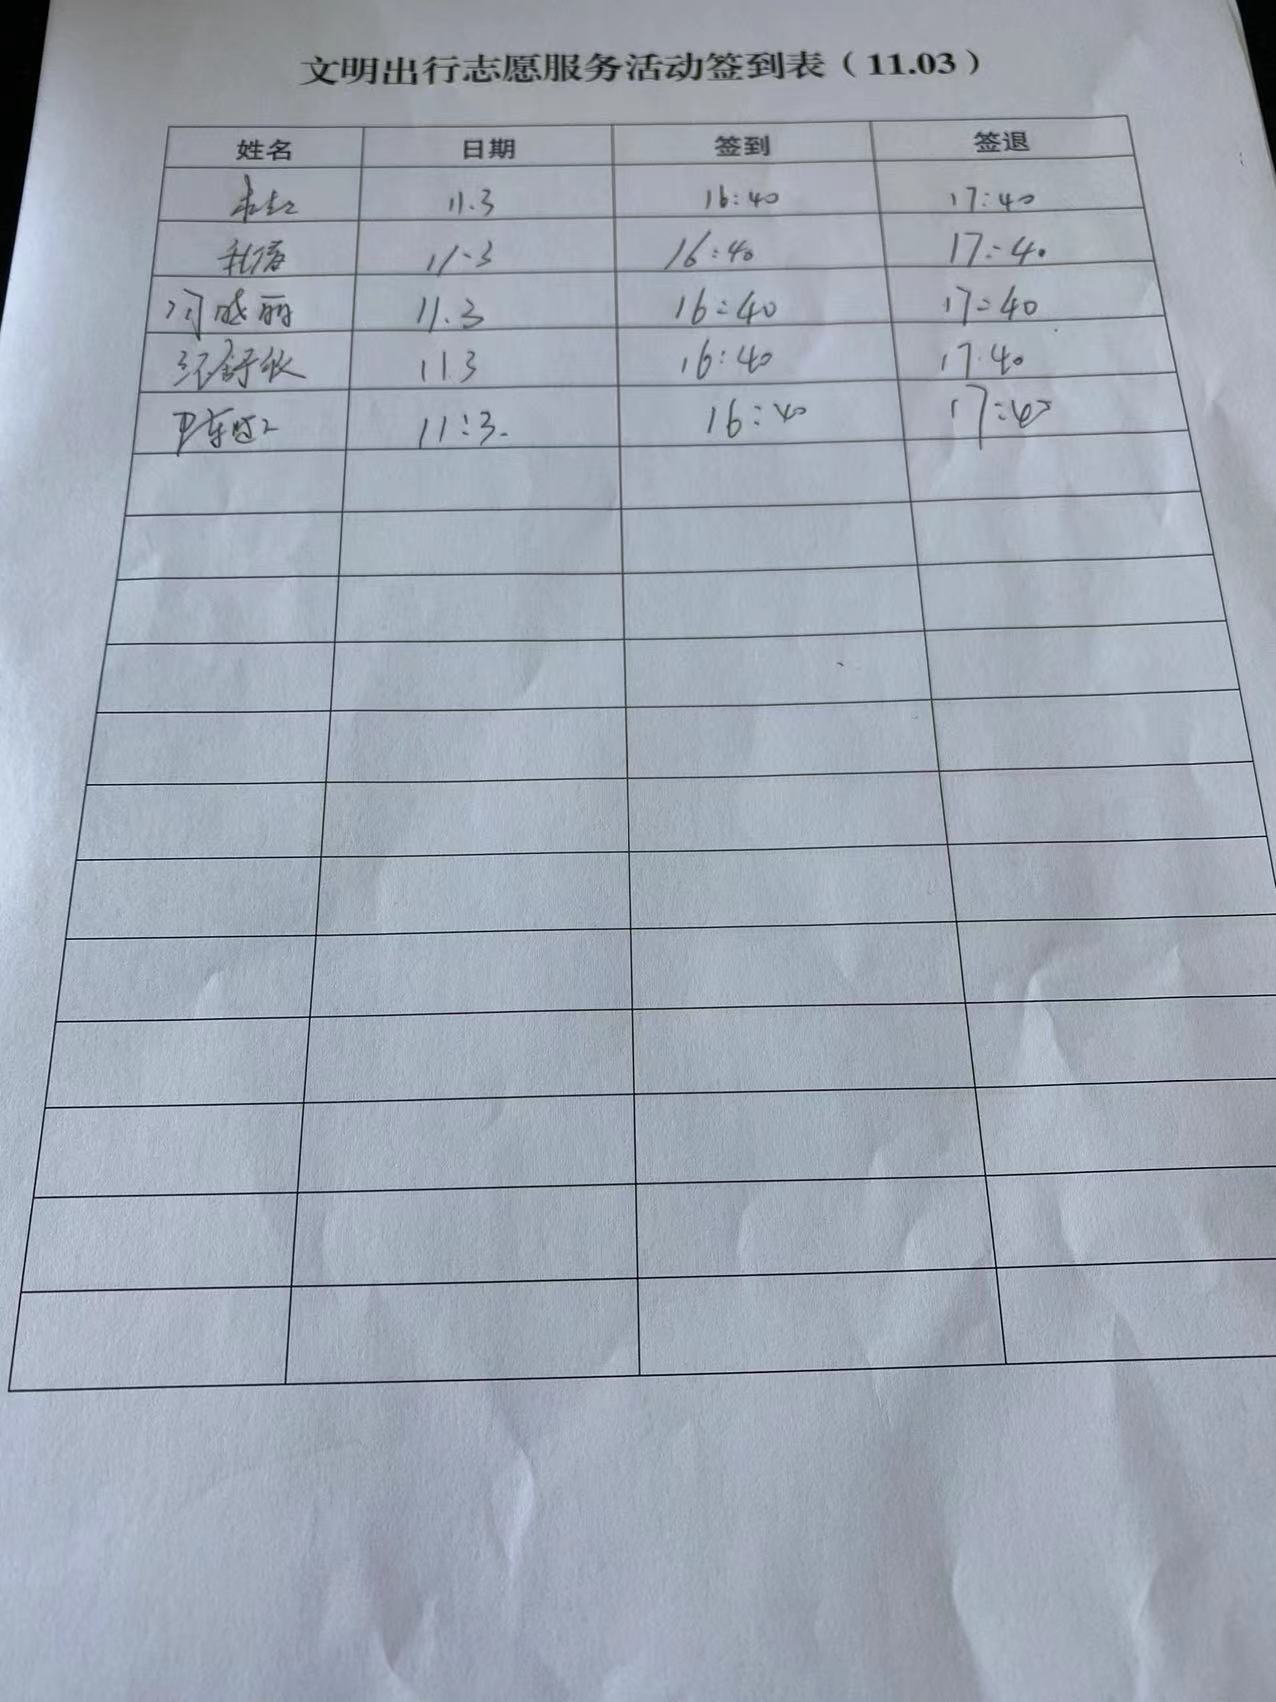 文明出行志愿服务活动签到表（11.03）
姓名 日期 签到 签退
11.3 16:40 17:40
11.3 16:40 17:40
晓丽 11.3 16:40 17:40
11.3 16:40 17.40
11:3. 16:40 17:40